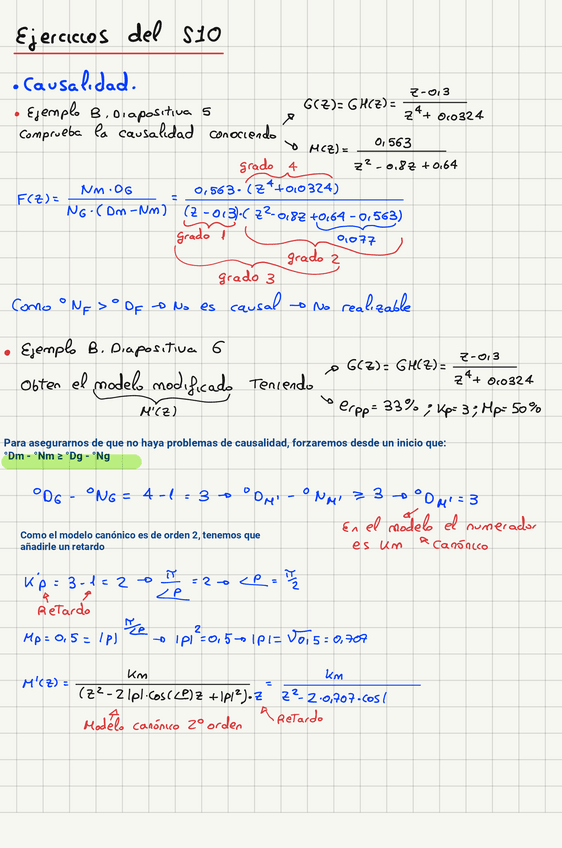 Ejercicios del S10
• Causalidad.
• Ejemplo B. Diapositiva 5
Comprueba la causalidad conociendo
G(z) = GH(z) = (z-0,3) / (z⁴ + 0,0324)
M(z) = 0,563 / (z² - 0,8z + 0,64)
F(z) = (Nm·DG) / (NG·(Dm-Nm)) = (0,563·(z⁴+0,0324)) / ((z-0,3)·(z²-0,8z+0,64-0,563))
grado 4
grado 1
0,077
grado 2
grado 3
Como °NF > °DF → No es causal → No realizable
• Ejemplo B. Diapositiva 6
Obten el modelo modificado Teniendo
M'(z)
G(z) = GH(z) = (z-0,3) / (z⁴ + 0,0324)
erpp = 33% ; Kp = 3 ; Mp = 50%
Para asegurarnos de que no haya problemas de causalidad, forzaremos desde un inicio que:
°Dm - °Nm ≥ °Dg - °Ng
°DG - °NG = 4-1 = 3 → °DM' - °NM' ≥ 3 → °DM' = 3
En el modelo el numerador
es Km
Canónico
Como el modelo canónico es de orden 2, tenemos que
añadirle un retardo
K'p = 3-1 = 2 → π/∠P = 2 → ∠P = π/2
Retardo
Mp = 0,5 = |P|^(π/∠P) → |P|² = 0,5 → |P| = √0,5 = 0,707
M'(z) = Km / ((z² - 2|P|·cos(∠P)z + |P|²)·z) = Km / (z² - 2·0,707·cos(
Modelo canónico 2º orden
Retardo